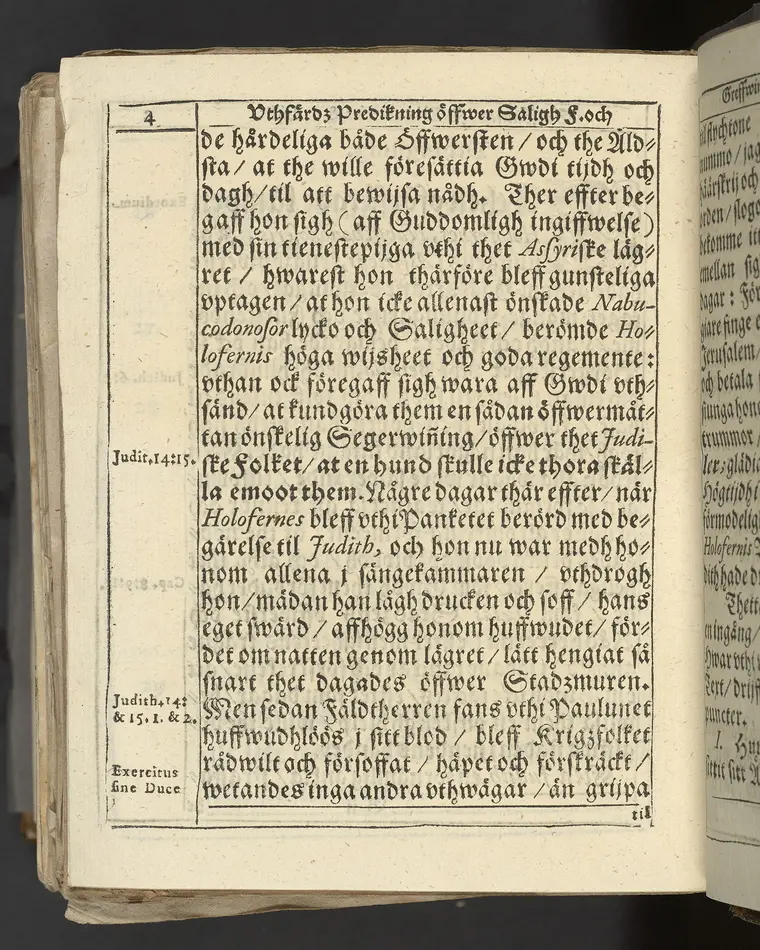 4
Vthfärdz Predikning öffwer Saligh F. och
de hårdeliga både Öffwersten / och the Äld⸗
sta / at the wille föresättia Gwdi tijdh och
dagh / til att bewijsa nådh. Ther effter be⸗
gaff hon sigh (aff Guddomligh ingiffwelse)
med sin tienestepijga vthi thet Assyriske läg⸗
ret / hwarest hon thärföre bleff gunsteliga
vptagen / at hon icke allenast önskade Nabu-
codonosor lycko och Saligheet / berömde Ho⸗
lofernis höga wijsheet och goda regemente:
vthan ock föregaff sigh wara aff Gwdi vth⸗
sänd / at kundgöra them en sådan öffwermåt⸗
tan önskelig Segerwiñing / öffwer thet Judi-
Judit. 14: 15.
ske Folket / at en hund skulle icke thora skäl⸗
la emoot them. Någre dagar thär effter / när
Holofernes bleff vthi Panketet berörd med be⸗
gärelse til Judith, och hon nu war medh ho⸗
nom allena j sängekammaren / vthdrogh
hon / mädan han lågh drucken och soff / hans
eget swärd / affhögg honom huffwudet / för⸗
det om natten genom lägret / lätt hengiat så
snart thet dagades öffwer Stadzmuren.
Judith. 14:
& 15. 1. & 2.
Men sedan Fäldtherren fans vthi Paulunet
huffwudhlöös j sitt blod / bleff Krigzfolket
Exercitus
sine Duce
rådwilt och försoffat / häpet och förskräckt /
wetandes inga andra vthwägar / än grijpa
til